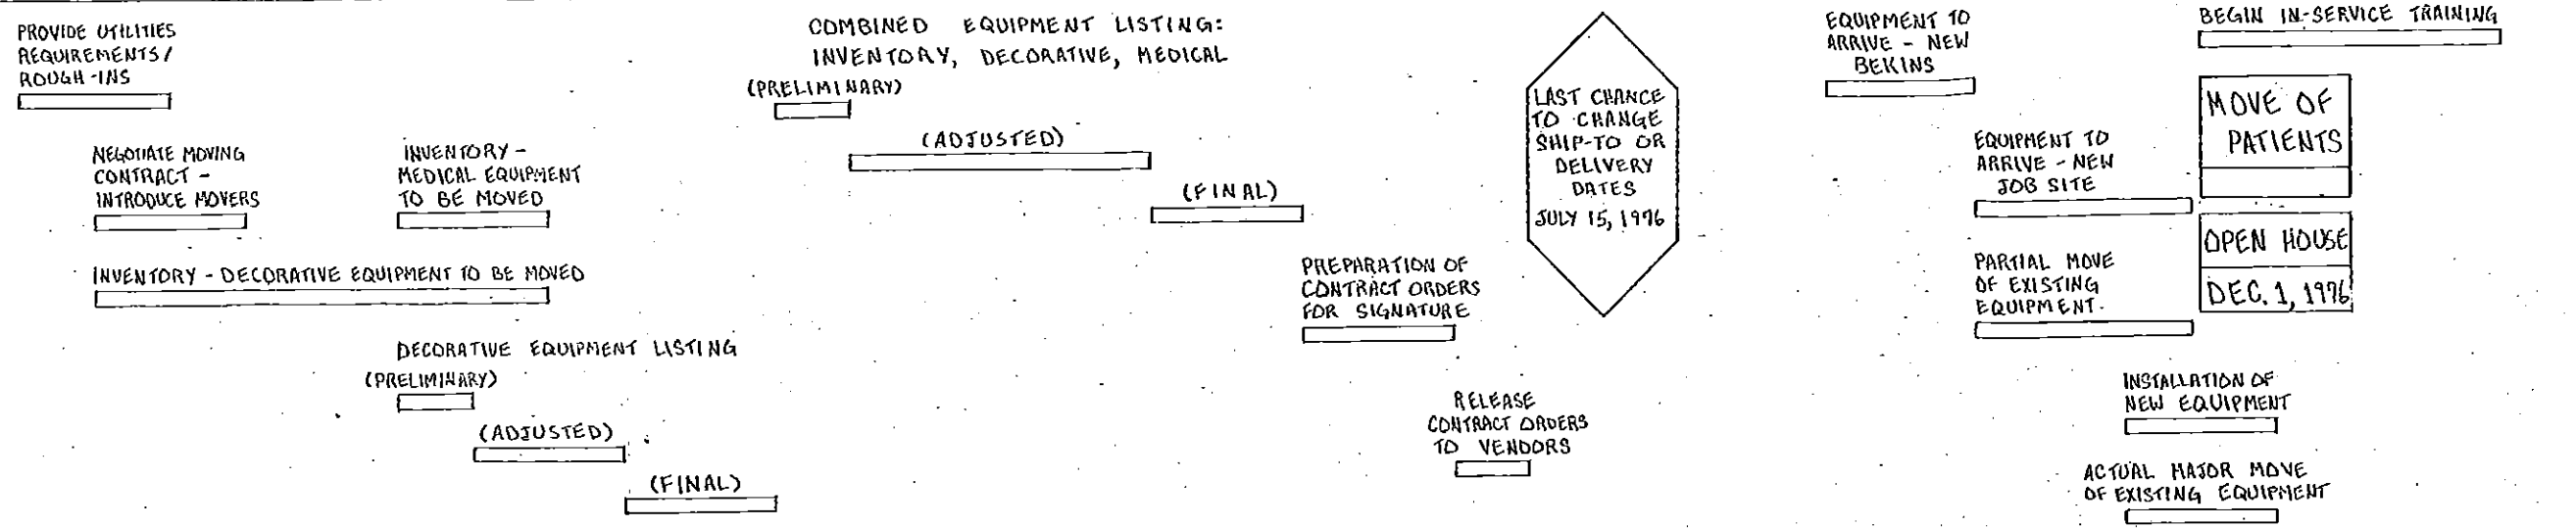 PROVIDE UTILITIES
REQUIREMENTS/
ROUGH-INS
NEGOTIATE MOVING
CONTRACT -
INTRODUCE MOVERS
INVENTORY -
MEDICAL EQUIPMENT
TO BE MOVED
INVENTORY - DECORATIVE EQUIPMENT TO BE MOVED
DECORATIVE EQUIPMENT LISTING
(PRELIMINARY)
(ADJUSTED)
(FINAL)
COMBINED EQUIPMENT LISTING:
INVENTORY, DECORATIVE, MEDICAL
(PRELIMINARY)
(ADJUSTED)
(FINAL)
PREPARATION OF
CONTRACT ORDERS
FOR SIGNATURE
RELEASE
CONTRACT ORDERS
TO VENDORS
LAST CHANCE
TO CHANGE
SHIP-TO OR
DELIVERY
DATES
JULY 15, 1976
EQUIPMENT TO
ARRIVE - NEW
BEKINS
EQUIPMENT TO
ARRIVE - NEW
JOB SITE
PARTIAL MOVE
OF EXISTING
EQUIPMENT.
BEGIN IN-SERVICE TRAINING
MOVE OF
PATIENTS
OPEN HOUSE
DEC. 1, 1976
INSTALLATION OF
NEW EQUIPMENT
ACTUAL MAJOR MOVE
OF EXISTING EQUIPMENT